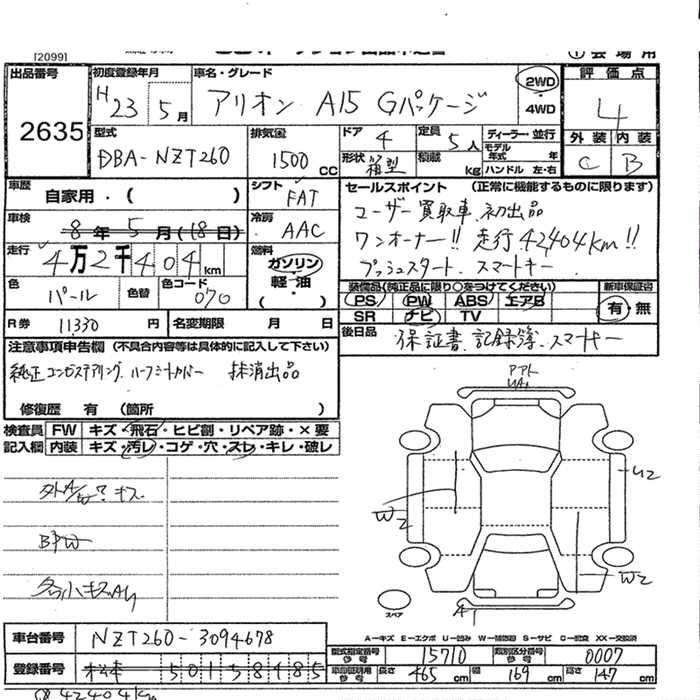 [2099]
出品番号 2635
初度登録年月 H23 5月
車名・グレード アリオン A15 Gパッケージ
2WD
・
4WD
評価点 4
外装 C 内装 B
型式 DBA-NZT260
排気量 1500 CC
ドア 4
定員 5人
形状 箱型
積載 kg
ディーラー・並行
モデル年式 年
ハンドル 左・右
車歴 自家用・( )
シフト FAT
車検 8年5月(18日)
冷房 AAC
走行 4万2千404km
燃料 ガソリン
軽・油
( ・ )
色 パール 色替 色コード 070
R券 11330 円 名変期限 月 日
セールスポイント (正常に機能するものに限ります)
ユーザー買取車 初出品
ワンオーナー!! 走行42404km!!
プッシュスタート スマートキー
装備品(純正品に限り○をつけてください) 新車保証書
PS PW ABS エアB 有・無
SR ナビ TV
後日品 保証書、記録簿、スマートキー
注意事項申告欄 (不具合内容等は具体的に記入して下さい)
純正コンビステアリング、ハーフシートカバー 抹消出品
修復歴 有 (箇所 )
検査員 FW キズ・飛石・ヒビ割・リペア跡・×要
記入欄 内装 キズ・汚レ・コゲ・穴・スレ・キレ・破レ
BPW
各小キズAU
U2
W2
W2
A1
スペア
A-キズ E-エクボ U-凹み W-補修跡 S-サビ C-腐食 XX-交換済
車台番号 NZT260-3094678
登録番号 松本 501 58485
型式指定番号 参考 15710 類別区分番号 参考 0007
車両証明用 参考 長さ 465 cm 幅 169 cm 高さ 147 cm
42404km